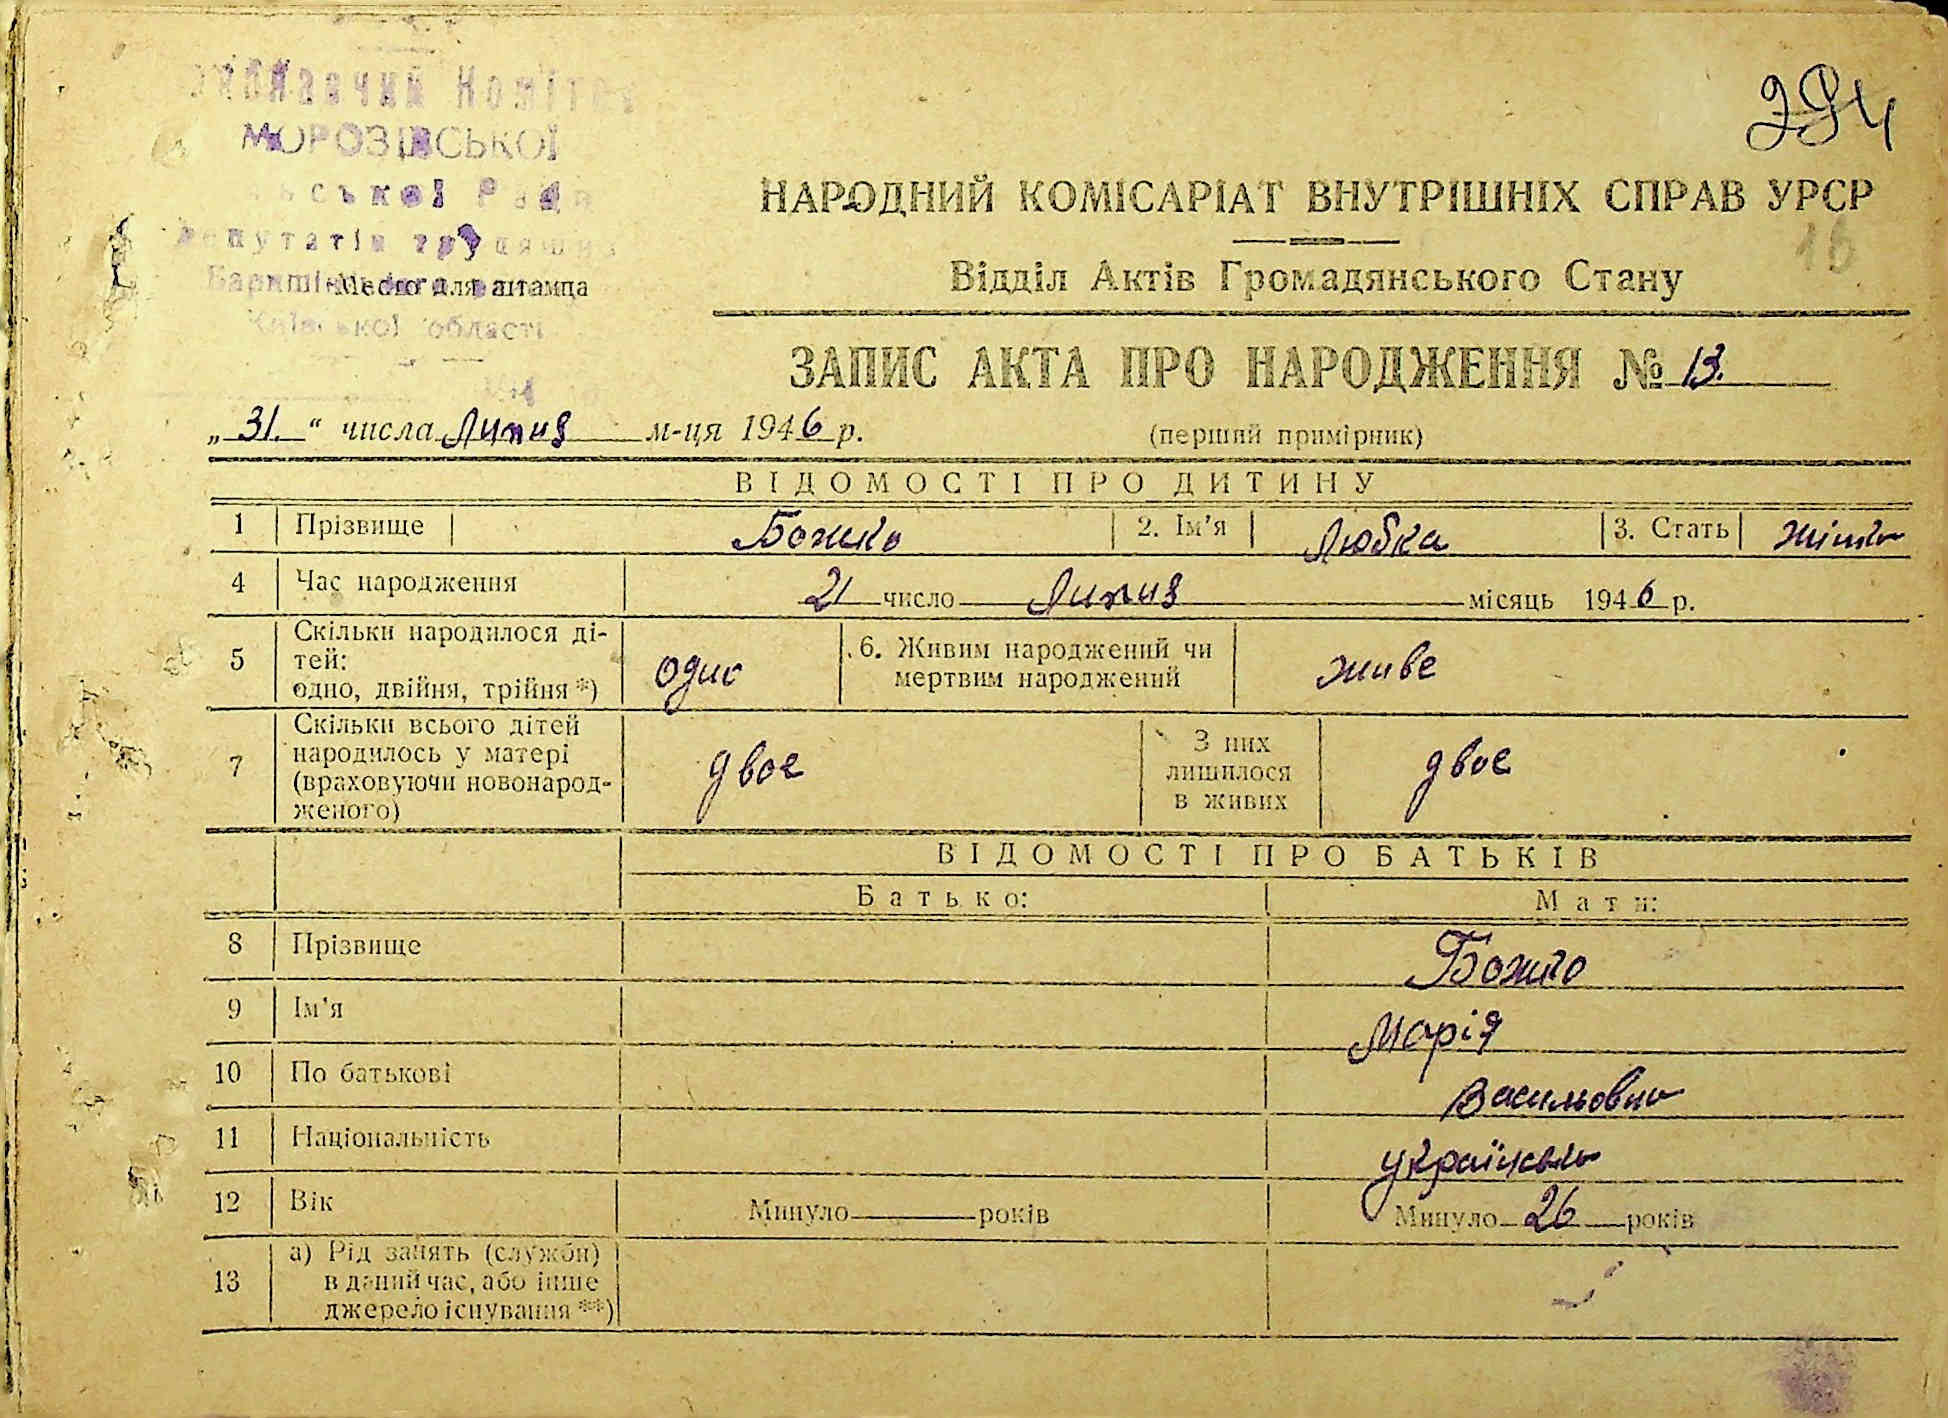 294
Виконавчий Комітет
МОРОЗІВСЬКОЇ
Сільської Ради
Депутатів трудящих
Баришівського
Место для штампа
Київської області
НАРОДНИЙ КОМІСАРІАТ ВНУТРІШНІХ СПРАВ УРСР
16
Відділ Актів Громадянського Стану
ЗАПИС АКТА ПРО НАРОДЖЕННЯ № 13.
„31.“ числа Липня м-ця 1946 р. (перший примірник)
ВІДОМОСТІ ПРО ДИТИНУ
1 Прізвище Божко 2. Ім'я Любка 3. Стать
4 Час народження 21 число Липня місяць 1946 р.
5 Скільки народилося ді-
тей:
одно, двійня, трійня *) одно 6. Живим народжений чи
мертвим народжений живе
7 Скільки всього дітей
народилось у матері
(враховуючи новонарод-
женого) двое З них
лишилося
в живих двое
ВІДОМОСТІ ПРО БАТЬКІВ
Батько: Мати:
8 Прізвище Божко
9 Ім'я Марія
10 По батькові Васильовна
11 Національність українська
12 Вік Минуло років Минуло 26 років
13 а) Рід занять (служби)
в даний час, або інше
джерело існування **)